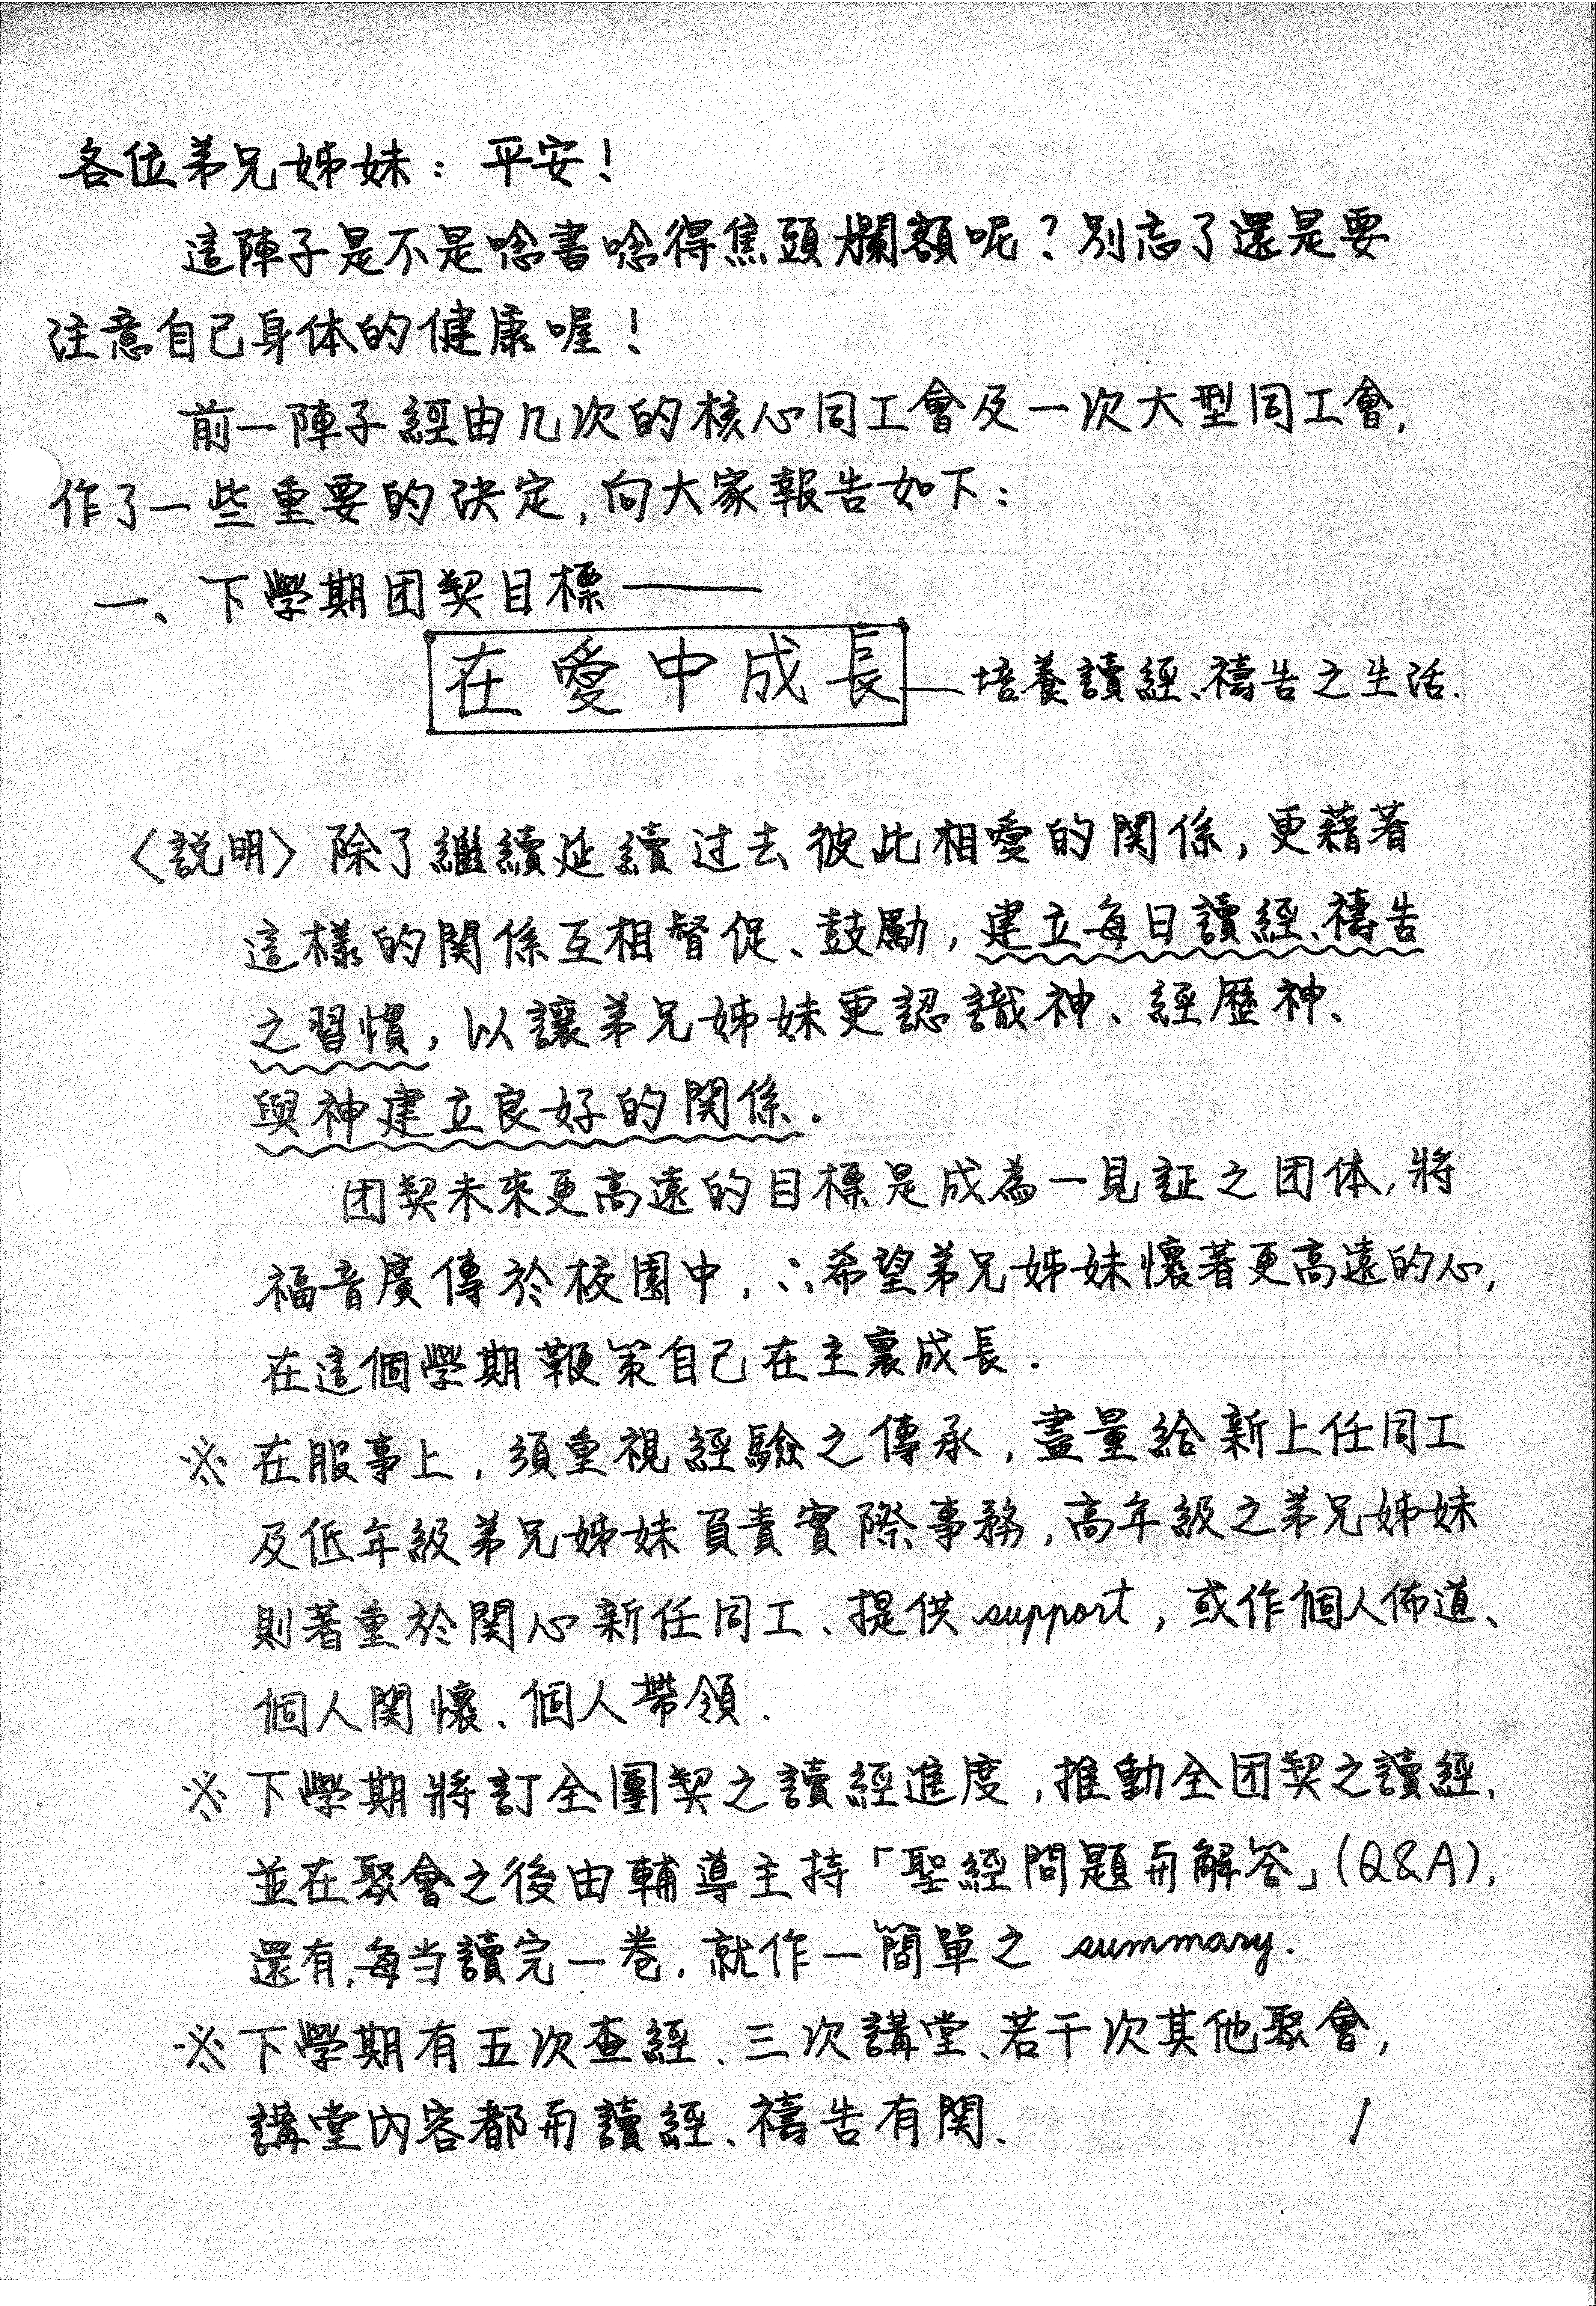 各位弟兄姊妹：平安！
這陣子是不是唸書唸得焦頭爛額呢？別忘了還是要
注意自己身体的健康喔！
前一陣子經由几次的核心同工會及一次大型同工會，
作了一些重要的決定，向大家報告如下：
一、下學期团契目標——
在愛中成長—培養讀經、禱告之生活.
〈説明〉除了繼續延續过去彼此相愛的関係，更藉著
這樣的関係互相督促、鼓勵，建立每日讀經、禱告
之習慣，以讓弟兄姊妹更認識神、經歷神、
與神建立良好的関係.
团契未來更高遠的目標是成為一見証之团体，將
福音廣傳於校園中，∴希望弟兄姊妹懷著更高遠的心，
在這個學期鞭策自己在主裏成長.
※在服事上，須重視經驗之傳承，盡量給新上任同工
及低年級弟兄姊妹負責實際事務，高年級之弟兄姊妹
則著重於関心新任同工、提供support，或作個人佈道、
個人関懷、個人帶領.
※下學期將訂全團契之讀經進度，推動全团契之讀經，
並在聚會之後由輔導主持「聖經問題与解答」(Q&A)，
還有，每当讀完一卷，就作一簡單之 summary.
※下學期有五次查經、三次講堂、若干次其他聚會，
講堂內容都与讀經、禱告有関、
1